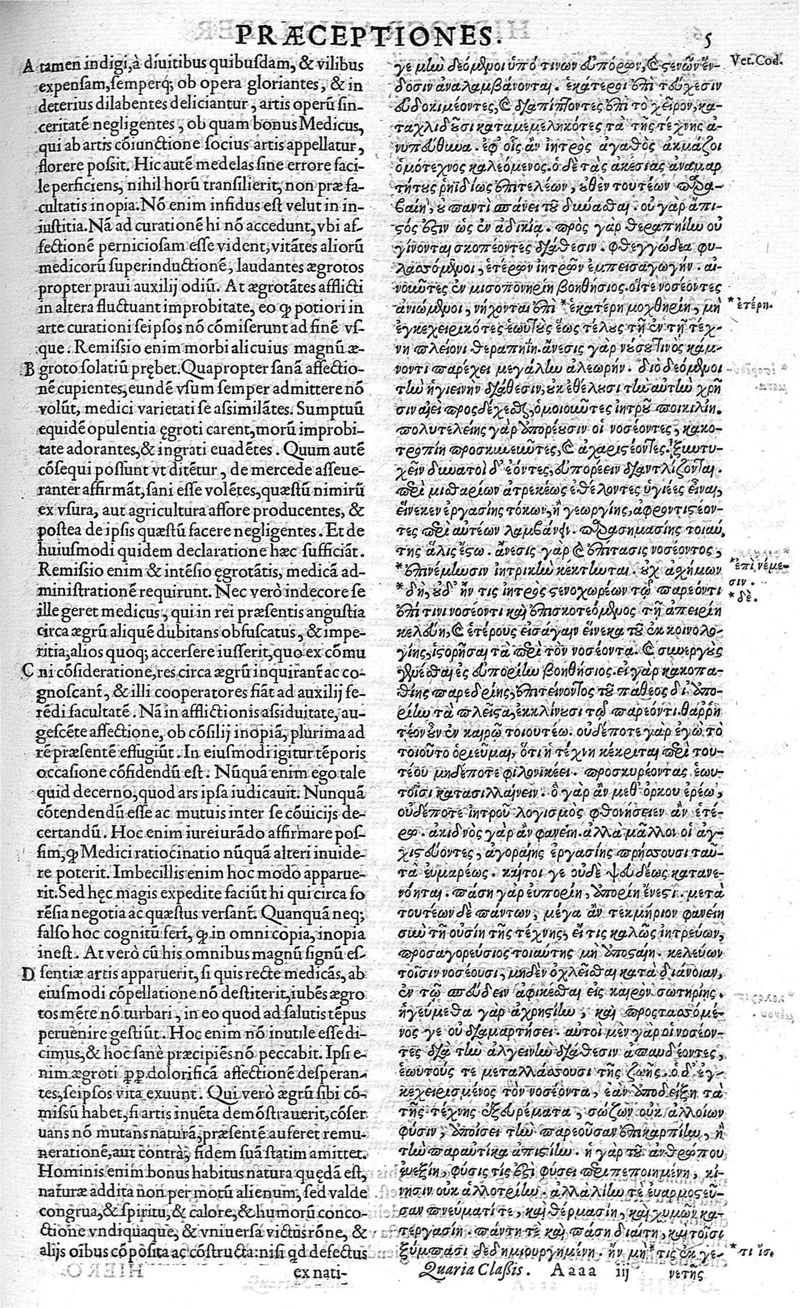 PRÆCEPTIONES. 5
A tamen indigi, à diuitibus quibusdam, & vilibus
expensam, semperq; ob opera gloriantes, & in
deterius dilabentes deliciantur, artis operū sin-
ceritatē negligentes, ob quam bonus Medicus,
qui ab artis cōiunctione socius artis appellatur,
florere possit. Hic autē medelas sine errore faci-
le perficiens, nihil horū transilierit, non præ fa-
cultatis inopia. Nō enim infidus est velut in in-
iustitia. Nā ad curationē hi nō accedunt, vbi af-
fectionē perniciosam esse vident, vitātes aliorū
medicorū superinductionē, laudantes ægrotos
propter praui auxilij odiū. At ægrotātes afflicti
in altera fluctuant improbitate, eo ꝙ potiori in
arte curationi seipsos nō cōmiserunt ad finē vs-
que. Remissio enim morbi alicuius magnū æ-
B groto solatiū prębet. Quapropter sanā affectio-
nē cupientes, eundē vsum semper admittere nō
volūt, medici varietati se assimilātes. Sumptuū
equidē opulentia ęgroti carent, morū improbi-
tate adorantes, & ingrati euadētes. Quum autē
cōsequi possunt vt ditētur, de mercede asseue-
ranter affirmāt, sani esse volētes, quæstū nimirū
ex vsura, aut agricultura assero producentes, &
postea de ipsis quæstū facere negligentes. Et de
huiusmodi quidem declaratione hæc sufficiāt.
Remissio enim & intēsio ęgrotātis, medicā ad-
ministrationē requirunt. Nec verò indecore se
ille geret medicus, qui in rei præsentis angustia
circa ægrū aliquē dubitans obfuscatus, & impe-
ritia, alios quoq; accersere iusserit, quo ex cōmu
C ni cōsideratione, res circa ægrū inquirant ac co-
gnoscant, & illi cooperatores fiāt ad auxilij fe-
rēdi facultatē. Nā in afflictionis assiduitate, au-
gescēte affectione, ob cōsilij inopiā, plurima ad
rē præsentē effugiūt. In eiusmodi igitur tēporis
occasione cōfidendū est. Nūquā enim ego tale
quid decerno, quod ars ipsa iudicauit. Nunquā
cōtendendū esse ac mutuis inter se cōuicijs de-
certandū. Hoc enim iureiurādo affirmare pos-
sim, ꝙ Medici ratiocinatio nūquā alteri inuide-
re poterit. Imbecillis enim hoc modo apparue-
rit. Sed hęc magis expedite faciūt hi qui circa fo-
rēsia negotia ac quæstus versant. Quanquā neq;
falso hoc cognitū serī, ꝙ in omni copia, inopia
inest. At verò cū his omnibus magnū signū es-
D sentiæ artis apparuerit, si quis recte medicās, ab
eiusmodi cōpellatione nō destiterit, iubēs ægro
tos mēte nō turbari, in eo quod ad salutis tēpus
peruenire gestiūt. Hoc enim nō inutile esse di-
cimus, & hoc sanè præcipiēs nō peccabit. Ipsi e-
nim ægroti ꝓꝑ dolorificā affectionē desperan-
tes, seipsos vita exuunt. Qui verò ægrū sibi cō-
missū habet, si artis inuēta demōstrauerit, cōser
uans nō mutans naturā, præsentē auferet remu-
nerationē, aut contrà, fidem suā statim amittet.
Hominis enim bonus habitus natura quędā est,
naturæ addita non per motū alienum, sed valde
congrua, & spiritu, & calore, & humorū conco-
ctione vndiquaque, & vniuersa victus rōne, &
alijs oībus cōposita ac cōstructa: nisi qd defectus
ex nati-
δοσιν ἀναλαμβάνονται. ἑκατέροι ἐπὶ τούχεσιν
εὐδοκιμέοντες, καὶ διαπίπτοντες ἐπὶ τὸ χεῖρον, κα-
ταχλιδεῦσι καταμεμεληκότες τὰ τῆς τέχνης ἀ-
νυπεύθυνα. ἐφ' οἷς ἂν ἰητρὸς ἀγαθὸς ἀκμάζοι
ὁμότεχνος καλεόμενος. ὁ δὲ τὰς ἀκέσιας ἀναμαρ
τήτους ῥηϊδίως ἐπιτελέων, οὐθὲν τουτέων παρα-
στός ἐστιν ὡς ἐν ἀδικίῃ. πρὸς γὰρ θεραπηΐην οὐ
γίνονται σκοπέοντες διάθεσιν. φθεγγώδεα φυ-
λασσόμενοι, ἑτέρων ἰητρῶν ἐμπεισαγωγήν. αἰ-
νοῦντες ἐν μισοπονηρίῃ βοηθήσιος. οἵ τε νοσέοντες
ἀνιώμενοι, νήχονται ἐπὶ *ἑκατέρῃ μοχθηρίῃ, μὴ
ἐγκεχειρικότες ἑωυτοὺς ἕως τέλους τῇ ἐν τῇ τέχ-
νῃ πλείονι θεραπηΐῃ. ἄνεσις γὰρ νούσου τινὸς κάμ-
νοντι παρέχει μεγάλην ἀλεωρήν. διὸ δεόμενοι
τὴν ὑγιεινὴν διάθεσιν, οὐκ ἐθέλουσι τὴν αὐτὴν χρῆ
σιν αἰεὶ προσδέχεσθαι, ὁμοιοῦντες ἰητροῦ ποικιλίῃ.
πολυτελείης γὰρ ἀπορέουσιν οἱ νοσέοντες, κακο-
τροπίῃ προσκυνεῦντες, καὶ ἀχαριστέοντες. ξυντυ-
χεῖν δυνατοὶ δ' ἐόντες, εὐπορέειν διαντλίζονται.
περὶ μισθαρίων ἀτρεκέως ἐθέλοντες ὑγιέες εἶναι,
εἵνεκεν ἐργασίης τόκων, ἢ γεωργίης, ἀφροντιστέον-
τες περὶ αὐτέων λαμβάνειν. παρασημασίης τοιαύ
της ἅλις ἔσω. ἄνεσις γὰρ καὶ ἐπίτασις νοσέοντος,
*ἐπινέμησιν ἰητρικὴν κέκτηνται. οὐκ ἀσχήμων
*δὴ, οὐδ' ἤν τις ἰητρὸς στενοχωρέων τῷ παρεόντι
ἐπί τινι νοσέοντι καὶ ἐπισκοτεόμενος τῇ ἀπειρίῃ
κελεύῃ, καὶ ἑτέρους εἰσάγειν εἵνεκα τοῦ ἐκ κοινολο-
γίης, ἱστορῆσαι τὰ περὶ τὸν νοσέοντα. καὶ συνεργοὺς
γενέσθαι ἐς εὐπορίην βοηθήσιος. ἐν γὰρ κακοπα-
θίης παρεδρίῃ, ἐπιτείνοντος τοῦ πάθεος δι' ἀπο-
ρίην τὰ πλεῖστα, ἐκκλίνουσι τῷ παρεόντι. θαρρη
τέον οὖν ἐν καιρῷ τοιουτέῳ. οὐδέποτε γὰρ ἐγὼ τὸ
τοιοῦτο ὁριεῦμαι, ὅτι ἡ τέχνη κέκριται περὶ του-
τέου μηδέποτε φιλονικέειν. προσκυρέοντας ἑωυ-
τοῖσι κατασιλλαίνειν. ὃ γὰρ ἂν μεθ' ὅρκου ἐρέω,
οὐδέποτε ἰητροῦ λογισμὸς φθονήσειεν ἂν ἑτέ-
ρῳ. ἀκιδνὸς γὰρ ἂν φανείη. ἀλλὰ μᾶλλον οἱ ἀγ-
χιστεύοντες, ἀγοραίης ἐργασίης πρήσσουσι ταῦ-
τα εὐμαρέως. καίτοι γε οὐδὲ ψευδέως κατανε-
νόηται. πάσῃ γὰρ εὐπορίῃ, ἀπορίη ἔνεστι. μετὰ
τουτέων δὲ πάντων, μέγα ἂν τεκμήριον φανείη
σὺν τῇ οὐσίῃ τῆς τέχνης, εἴ τις καλῶς ἰητρεύων,
προσαγορεύσιος τοιαύτης μὴ ἀποσταίη. κελεύων
τοῖσιν νοσέουσι, μηδὲν ὀχλεῖσθαι κατὰ διάνοιαν,
ἐν τῷ σπεύδειν ἀφικέσθαι εἰς καιρὸν σωτηρίης.
νος γε οὐ διαμαρτήσει. αὐτοὶ μὲν γὰρ οἱ νοσέον-
τες διὰ τὴν ἀλγεινὴν διάθεσιν ἀπαυδέοντες,
ἑωυτούς τε μεταλλάσσουσι τῆς ζωῆς. ὁ δ' ἐγ-
κεχειρισμένος τὸν νοσέοντα, ἐὰν ἀποδείξῃ τὰ
τῆς τέχνης ἐξευρέματα, σώζων οὐκ ἀλλοίων
φύσιν, ἀποίσει τὴν παρεοῦσαν ἐπικαρπίην, ἢ
τὴν παραυτίκα ἀπιστίην. ἡ γὰρ τοῦ ἀνθρώπου
εὐεξίη, φύσις τίς ἐστι φύσει περιπεποιημένη, κί-
νησιν οὐκ ἀλλοτρίην. ἀλλὰ λίην τε εὐαρμοστεῦ-
σαν πνεύματί τε, καὶ θερμασίῃ, καὶ χυμῶν κα-
τεργασίῃ. πάντῃ τε καὶ πάσῃ διαίτῃ, καὶ τοῖσι
ξύμπασι δεδημιουργημένη. ἢν μή *τις ἐκ γε-
νετῆς
Vet. Cod.
*ἑτέρη.
*ἐπὶ νέμε-
σιν.
*δέ.
*τι ἴσ.
Quarta Classis. Aaaa iij